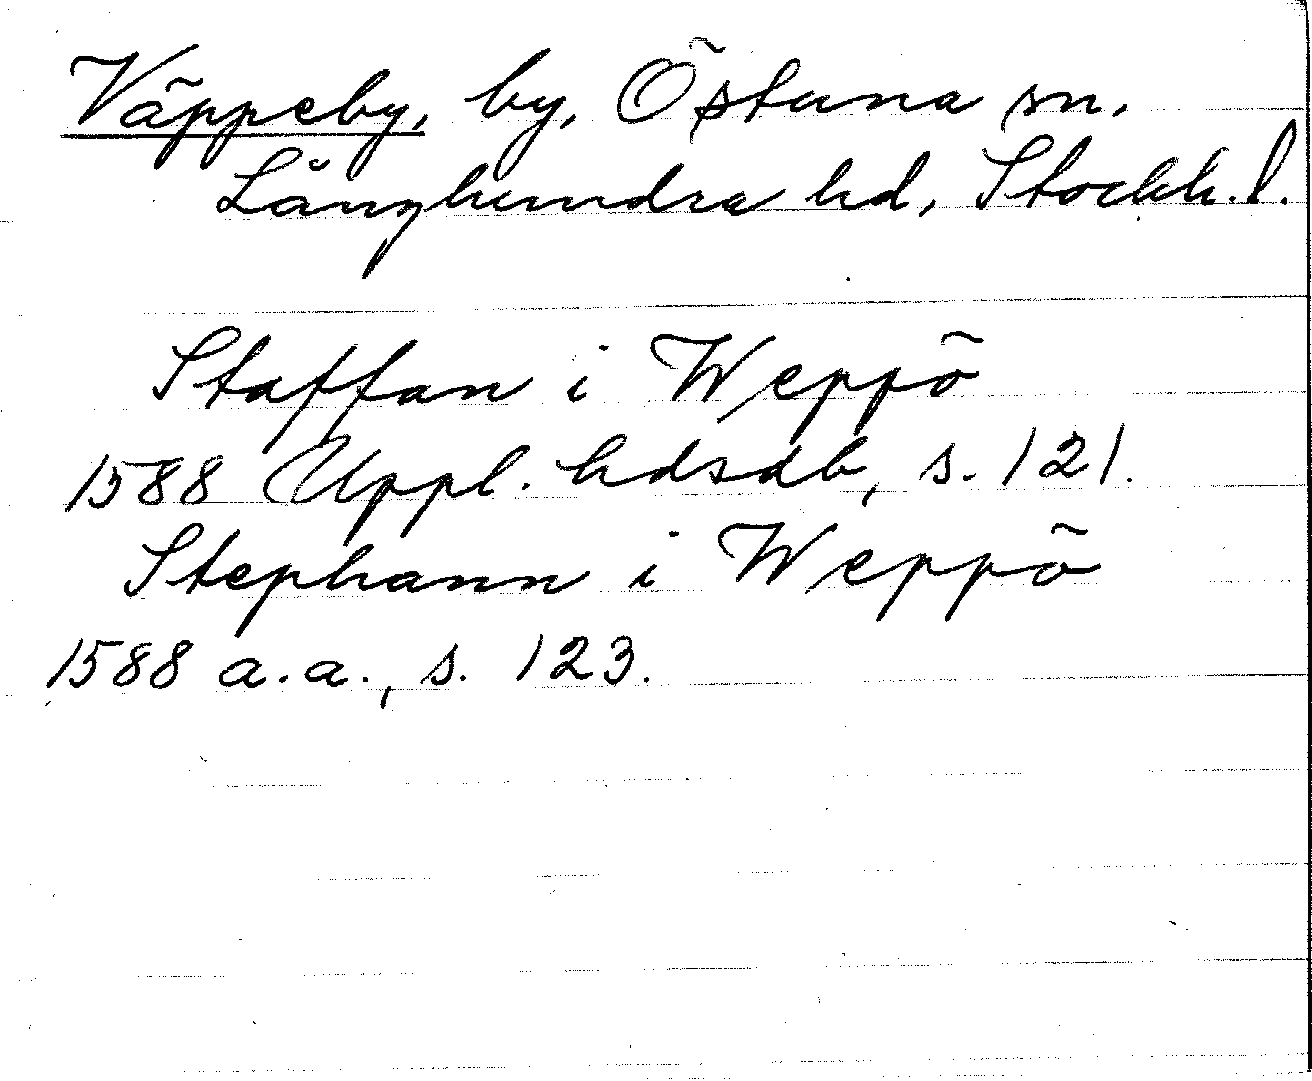 Väppeby, by, Östuna sn.
Långhundra hd, Stockh. l.
Staffan i Weppö
1588 Uppl. hdsdb, s. 121.
Stephann i Weppö
1588 a.a., s. 123.